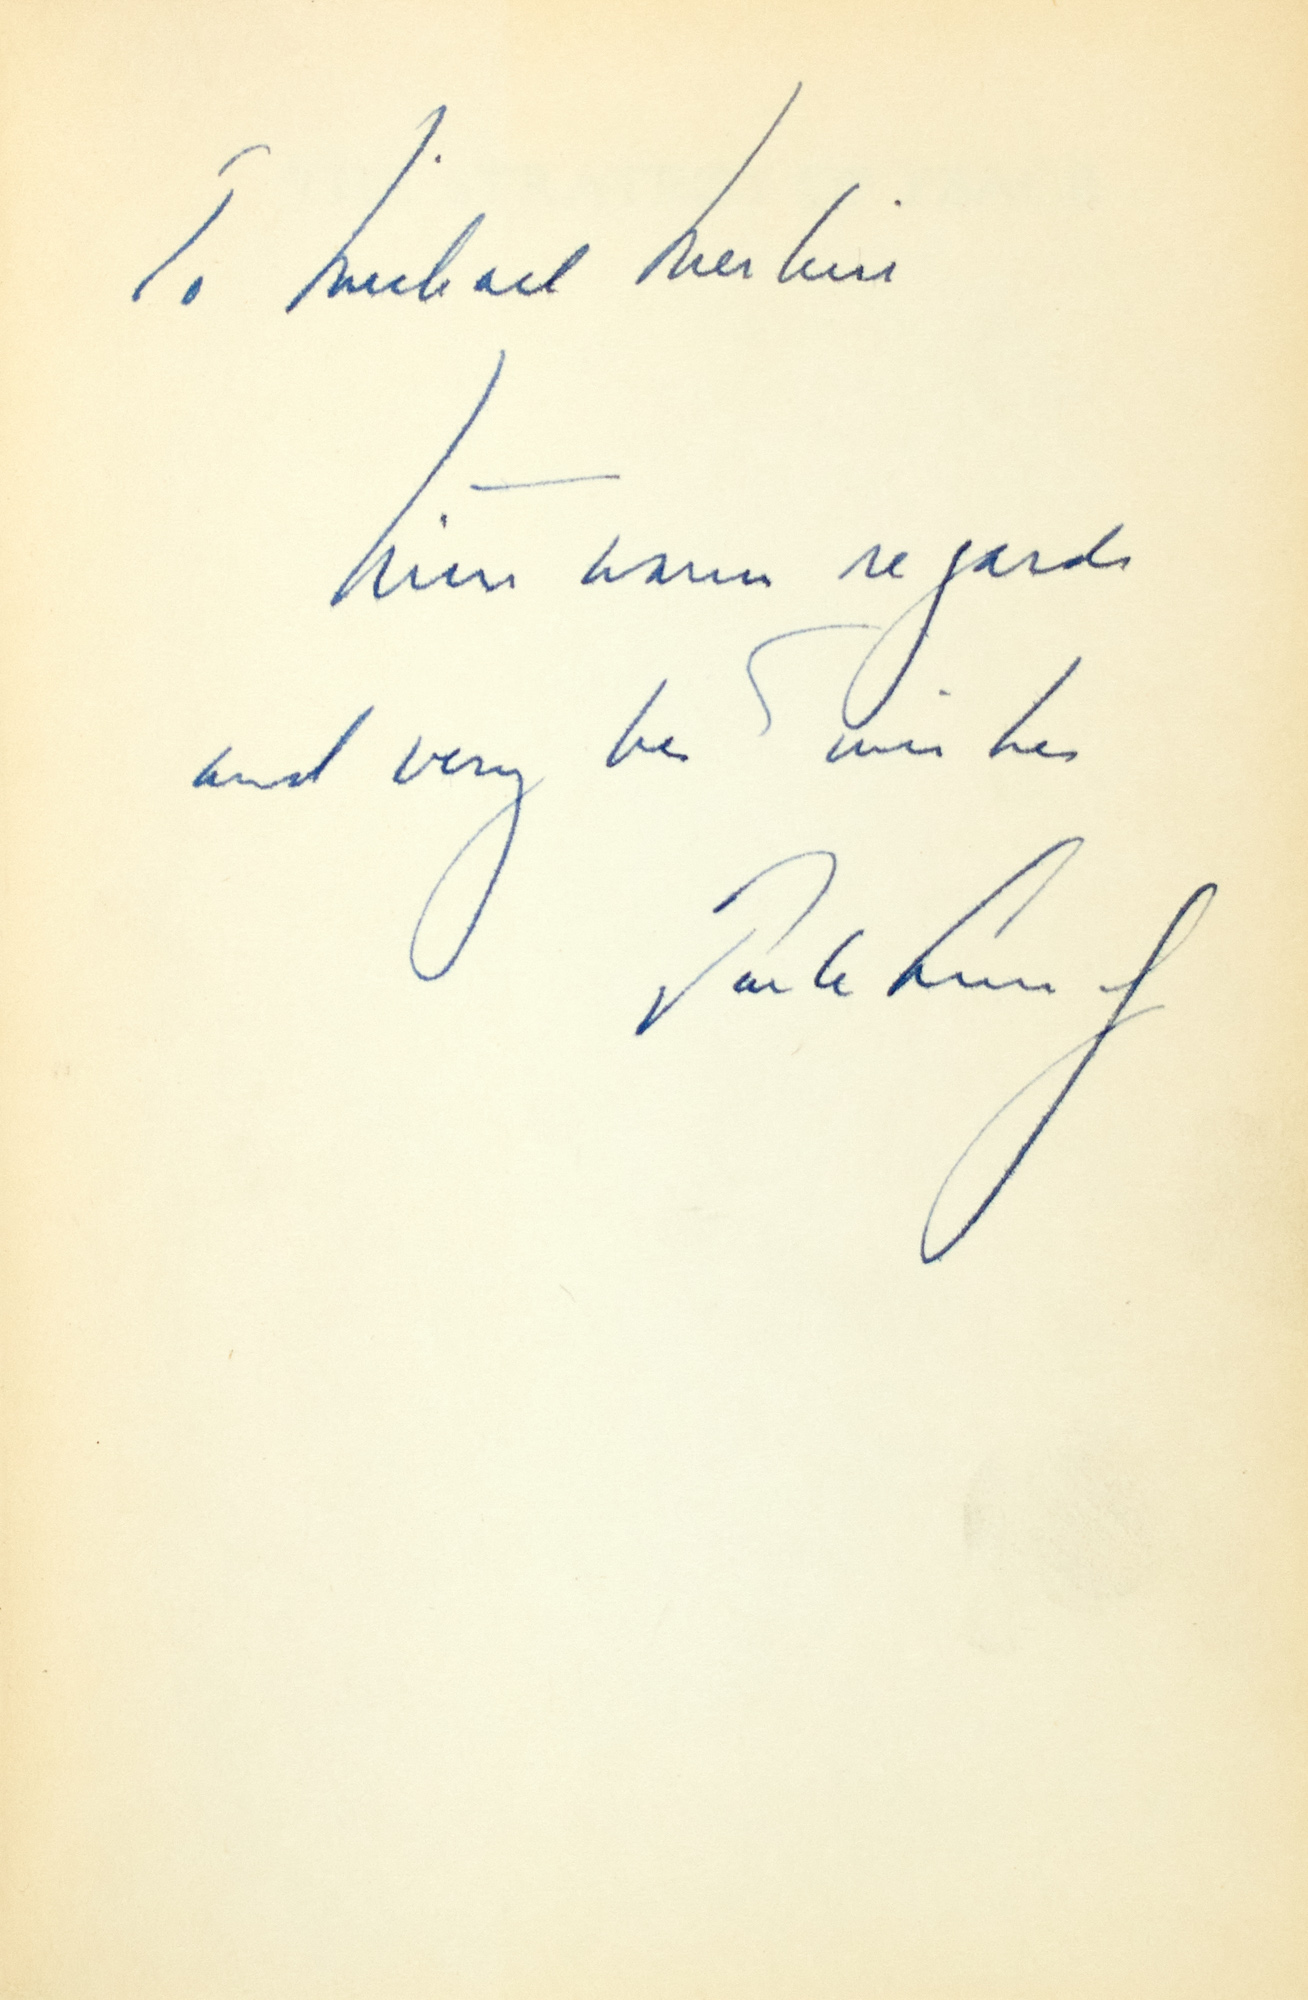 To Michael Merkin
With warm regards
and very best wishes